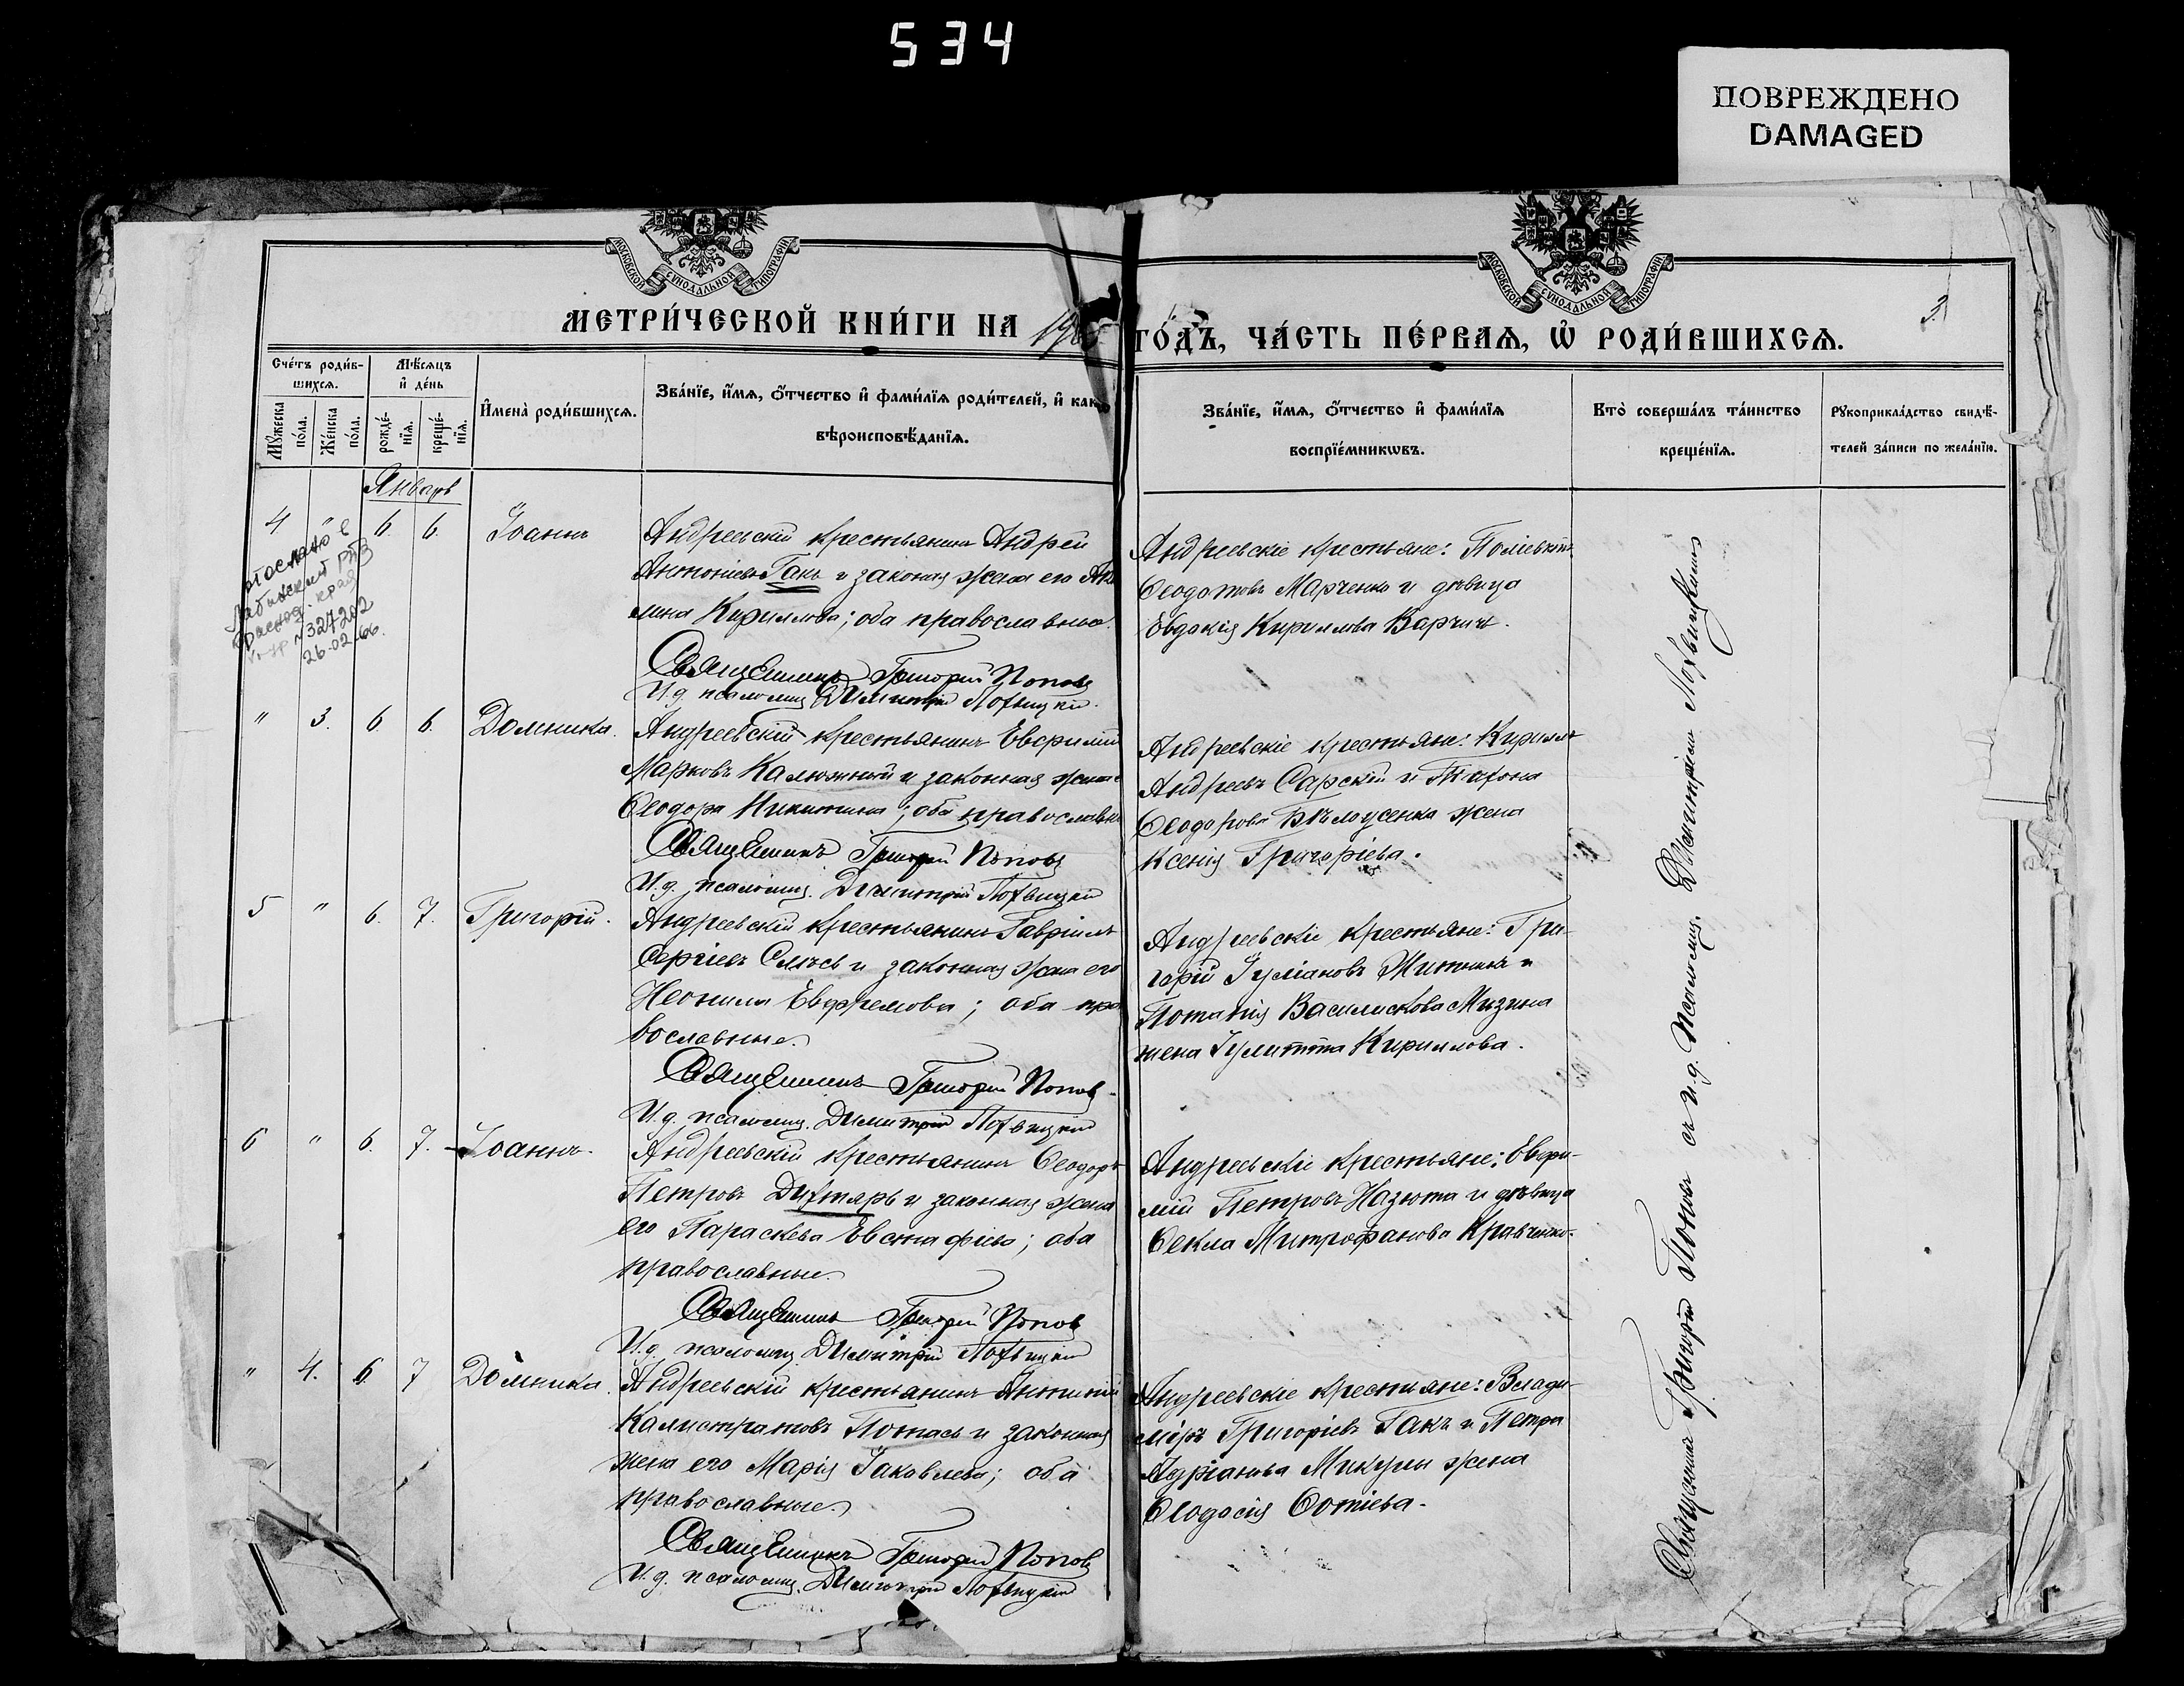 534
ПОВРЕЖДЕНО
DAMAGED
МОСКОВСКОЙ СѴНОДАЛЬНОЙ ТИПОГРАФІИ
МОСКОВСКОЙ СѴНОДАЛЬНОЙ ТИПОГРАФІИ
МЕТРИ́ЧЕСКОЙ КНИ́ГИ НА
ГО́ДЪ, ЧА́СТЬ ПЕ́РВАЯ, Ѡ҆ РОДИ́ВШИХСѦ.
3.
Сче́тъ роди́в-
шихсѧ.
Мꙋ́жеска по́ла.
Же́нска по́ла.
Мѣ́сѧцъ
и҆ де́нь
рожде́-нїѧ.
креще́-нїѧ.
И҆мена̀ роди́вшихсѧ.
Зва́нїе, и҆́мѧ, ѻ҆́тчество и҆ фами́лїѧ роди́телей, и҆ как
вѣроисповѣ́данїѧ.
Зва́нїе, и҆́мѧ, ѻ҆́тчество и҆ фами́лїѧ
воспрїе́мникѡвъ.
Кто̀ соверша́лъ та́инство
креще́нїѧ.
Рꙋкоприкла́дство свидѣ́-
телей за́писи по жела́нїю.
Январь
4 " 6. 6. Іоаннъ
Андреевскій крестьянинъ Андрей
Антоніевъ Ганъ и законная жена его
Кириллова; оба православные.
Священникъ Григорій Поповъ
И. д. псаломщ. Димитрій Лохвицкій.
Андреевскіе крестьяне: Поліевктъ
Ѳеодотовъ Марченко и дѣвица
Евдокія Кириллова Варчичъ.
край
№ 327202
26-02-66.
" 3. 6. 6. Домника.
Андреевскій крестьянинъ Евфимій
Марковъ Калюжный и законная жена
Ѳеодора Никитина; оба православн
Священникъ Григорій Поповъ
И. д. псаломщ. Димитрій Лохвицкій
Андреевскіе крестьяне: Кириллъ
Андреевъ Сарскій и Тихона
Ѳеодорова Бѣлоусенка жена
Ксенія Григоріева.
5 " 6. 7. Григорій.
Андреевскій крестьянинъ Гавріилъ
Сергіевъ и законная жена его
Неонила Евфремова; оба пра
вославные.
Священникъ Григорій Поповъ
И. д. псаломщ. Димитрій Лохвицкій
Андреевскіе крестьяне: Гри-
горій Іуліановъ Житникъ и
Потапія Василискова Мизина
жена Іулитта Кириллова.
6 " 6. 7. Іоаннъ.
Андреевскій крестьянинъ Ѳеодоръ
Петровъ Дихтярь и законная жена
его Параскева Евстафіева; оба
православные.
Священникъ Григорій Поповъ
И. д. псаломщ. Димитрій Лохвицкій
Андреевскіе крестьяне: Евфи-
мій Петровъ Назюта и дѣвица
Ѳекла Митрофанова Кравченко.
" 4. 6. 7 Домника.
Андреевскій крестьянинъ
Калистратовъ Потась и законная
жена его Марія Іаковлева; оба
православные.
Священникъ Григорій Поповъ
И. д. псаломщ. Димитрій Лохвицкій
Андреевскіе крестьяне: Влади-
міръ Григоріевъ Гакъ и Петра
Адріанова Микулы жена
Ѳеодосія Ѳотіева.
Священникъ Григорій Поповъ съ и. д. псаломщ. Димитріемъ Лохвицкимъ